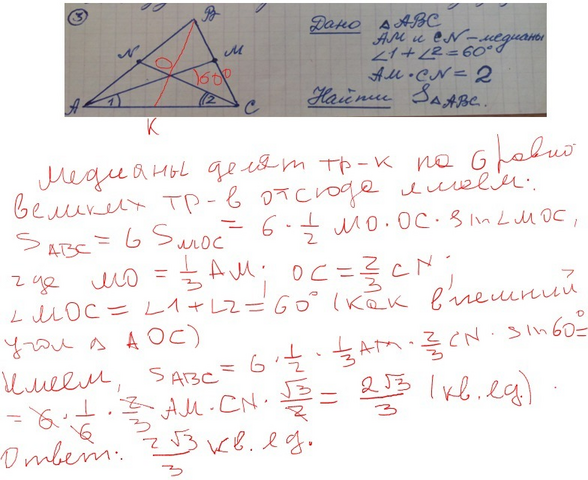 ③
B
N
M
O
60°
A
1
2
C
K
Дано △ABC
AM и CN – медианы
∠1+∠2=60°
AM·CN = 2
Найти S△ABC.
Медианы делят тр-к на 6 равно
великих тр-в отсюда имеем:
S ABC = 6 S MOC = 6 · 1/2 MO · OC · sin∠MOC,
где MO = 1/3 AM; OC = 2/3 CN;
∠MOC = ∠1+∠2 = 60° (как внешний
угол △ AOC)
Имеем, S ABC = 6 · 1/2 · 1/3 AM · 2/3 CN · sin 60° =
= 6 · 1/6 · 2/3 AM · CN · √3/2 = 2√3/3 (кв. ед.).
Ответ: 2√3/3 кв. ед.